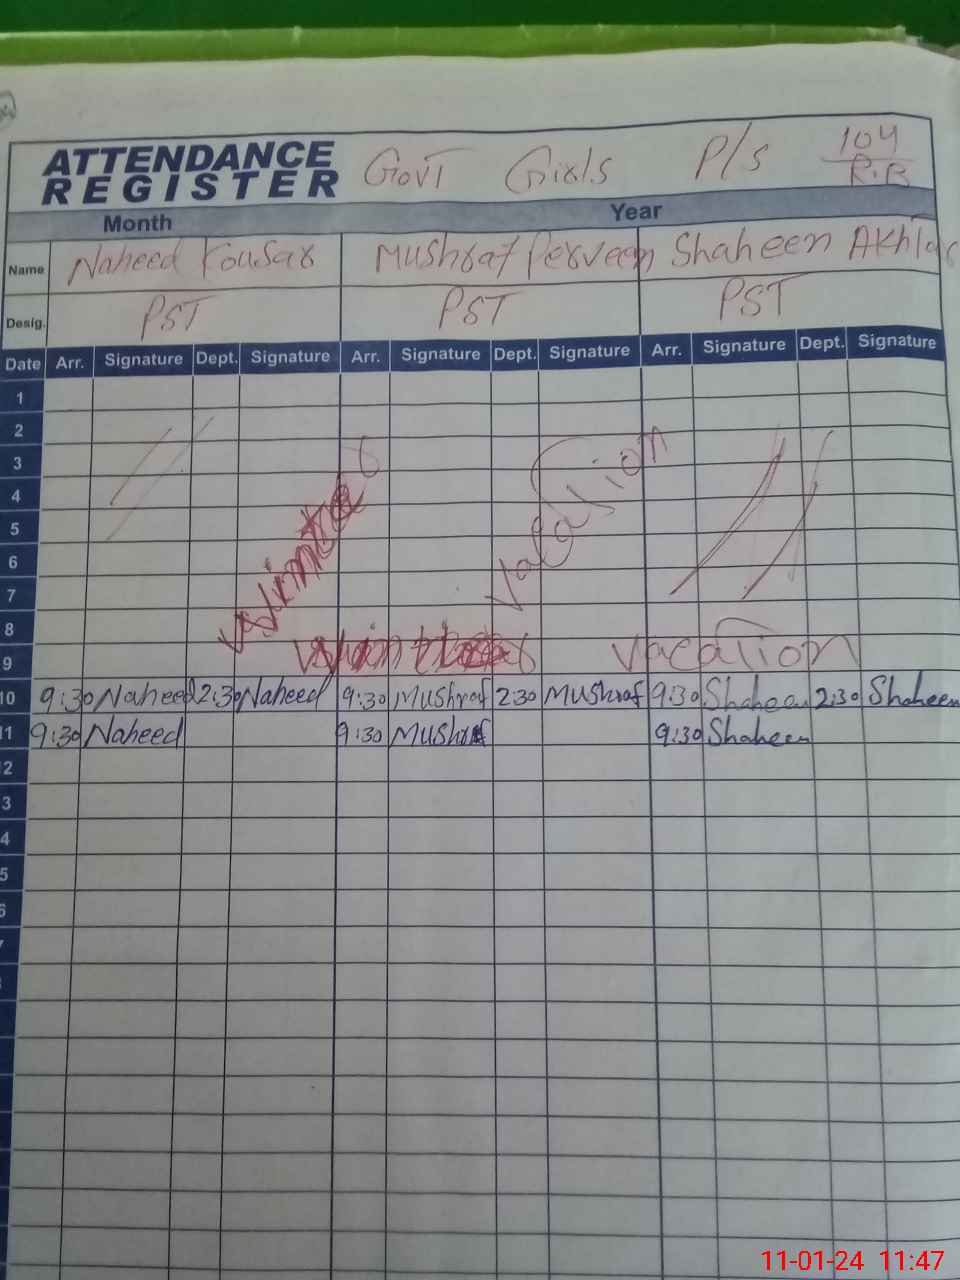 ATTENDANCE
REGISTER
Govt Girls P/S 104
R.B
Month Year
Name Naheed Kousar Mushraf Perveen Shaheen Akhtar
Desig. PST PST PST
Date Arr. Signature Dept. Signature Arr. Signature Dept. Signature Arr. Signature Dept. Signature
1
2
3
4
5
6
7
8
Vacation
9 vacation
10 9:30 Naheed 2:30 Naheed 9:30 Mushraf 2:30 Mushraf 9:30 Shaheen 2:30 Shaheen
11 9:30 Naheed 9:30 Mushraf 9:30 Shaheen
2
3
4
5
6
11-01-24 11:47